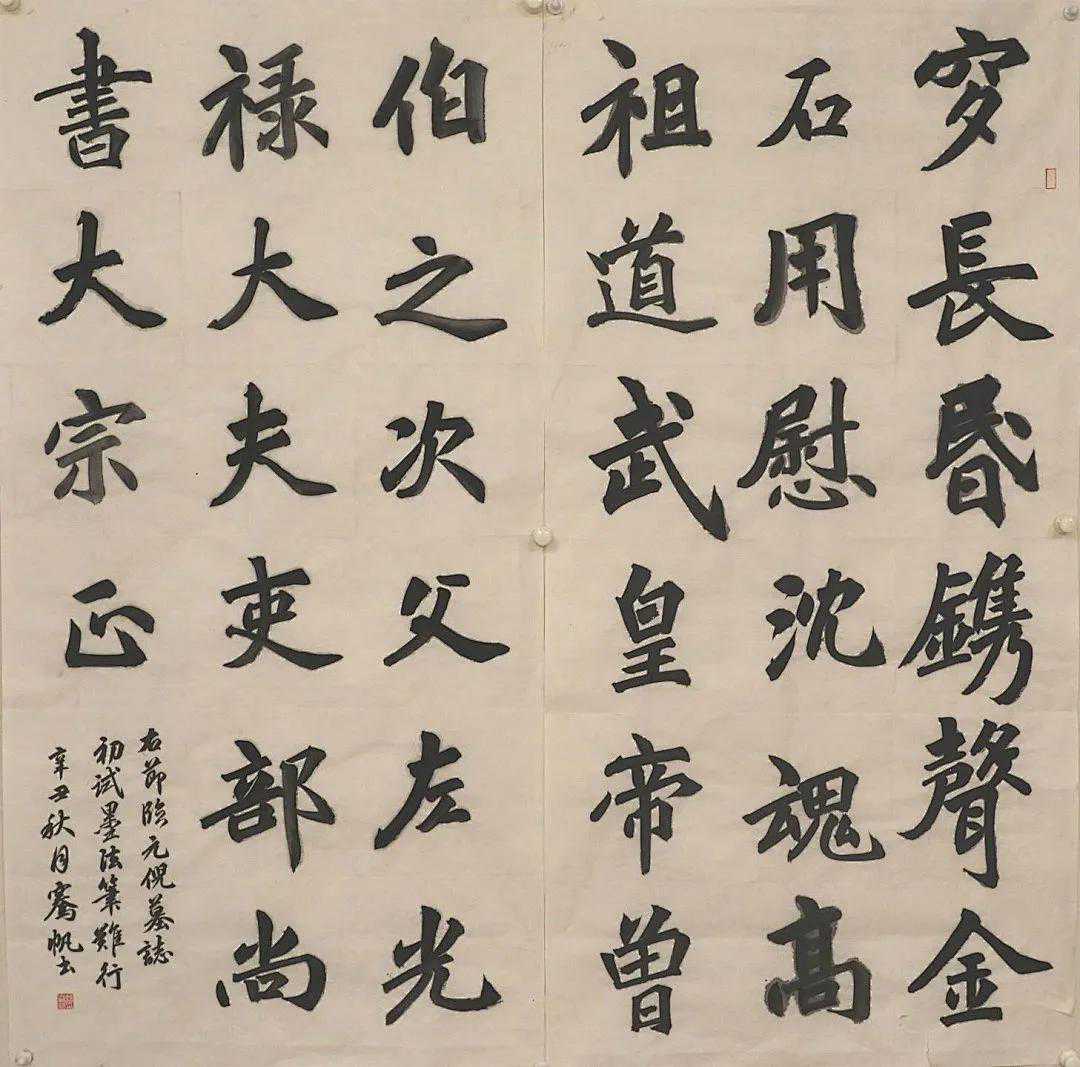 穸長昬鎸聲金
石用慰沈魂髙
祖道武皇帝曾
伯之次父左光
禄大夫吏部尚
書大宗正
右節臨元倪墓誌
初試墨法筆難行
辛丑秋月騫帆书